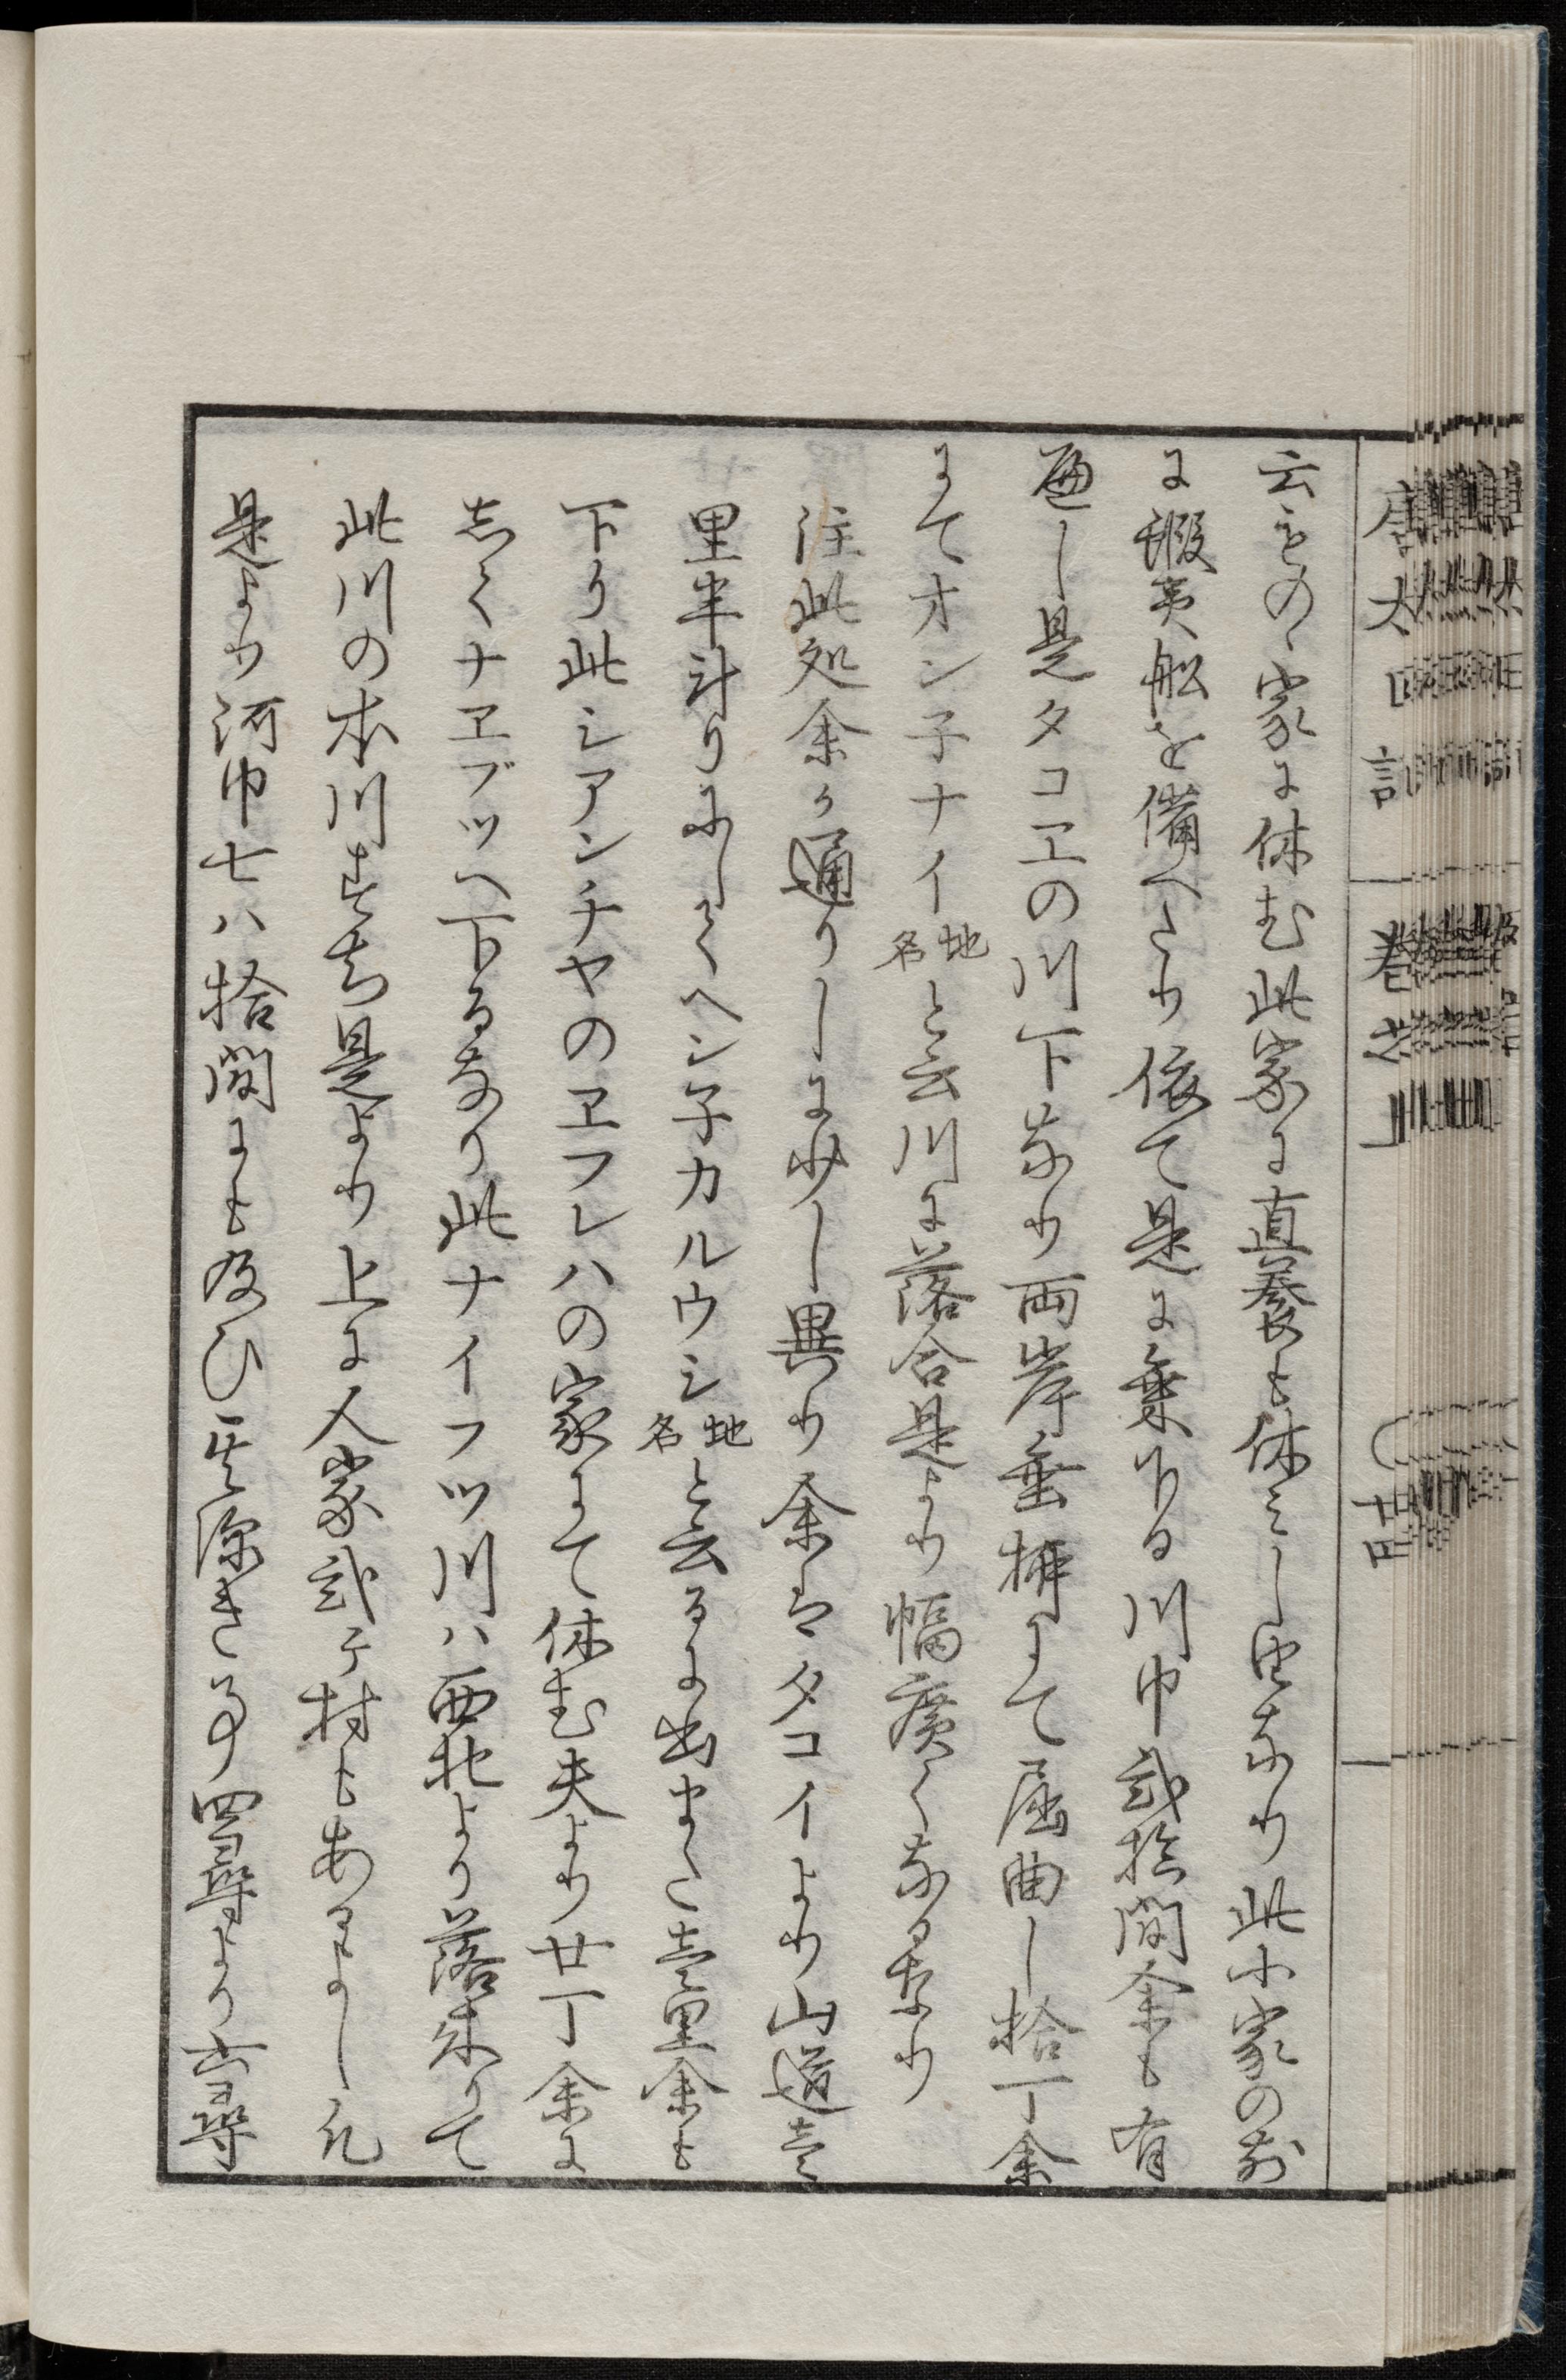 云ものゝ家に休む此家に直養も休みし由なり此小家の前
に蝦夷船を備へたり依て是に乗り下る川巾弐拾間余も有
遍し是タコエの川下なり両岸垂柳にて屈曲し拾丁余
にてオン子ナイ地名と云川に落合是より幅廣くなるなり
注此処余か通りしに少し異り余はタコイより山道壱
里半計りにしてヘン子カルウシ地名と云るに出また壱里余も
下り此シアンチヤのヱフレハの家にて休む夫より廿丁余に
志てナヱブツへ下るなり此ナイフツ川ハ西北より落来りて
此川の本川すち是より上に人家弐ケ村もあるよし扨
是より河巾七八拾間にも及ひ其深き事四尋より六尋